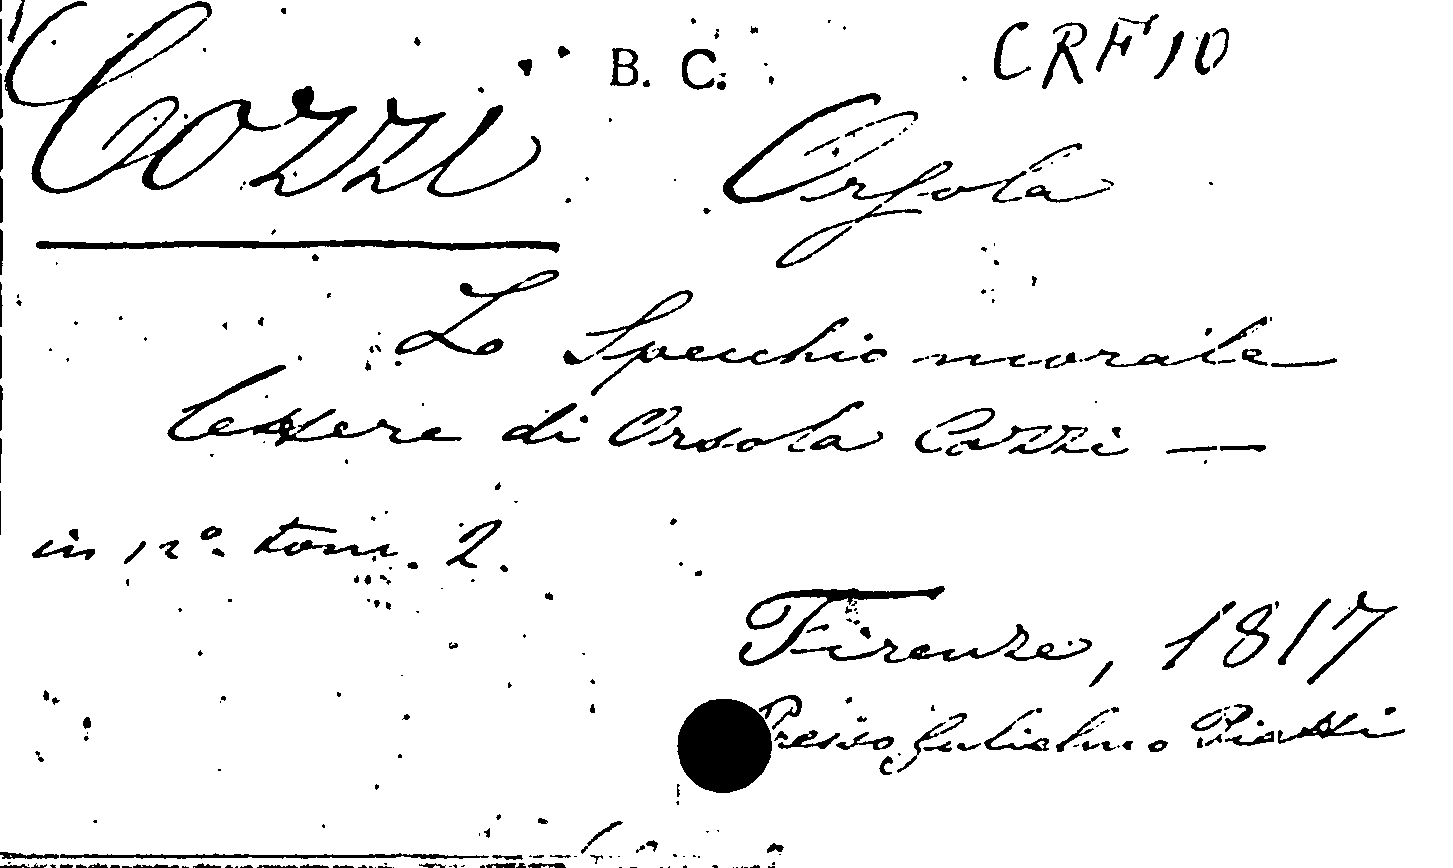 B. C. CRF 10
Cozzi Orsola
Lo Specchio morale
lettere di Orsola Cozzi —
in 12º. tom. 2.
Firenze, 1817
Presso Gulielmo Piatti